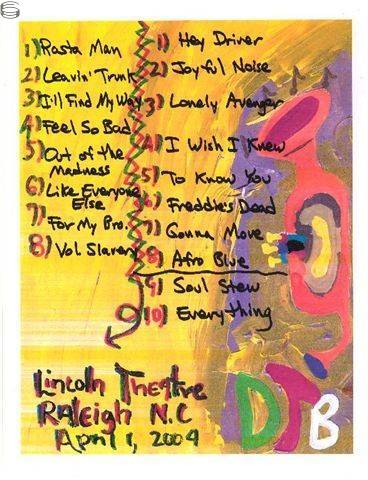 1) Rasta Man
2) Leavin' Trunk
3) I'll Find My Way
4) Feel So Bad
5) Out of the
Madness
6) Like Everyone
Else
7) For My Bro.
8) Vol. Slavery
1) Hey Driver
2) Joyful Noise
3) Lonely Avenger
4) I Wish I Knew
5) To Know You
6) Freddie's Dead
7) Gonna Move
8) Afro Blue
9) Soul Stew
10) Everything
Lincoln Theatre
Raleigh N.C
April 1, 2004
DTB